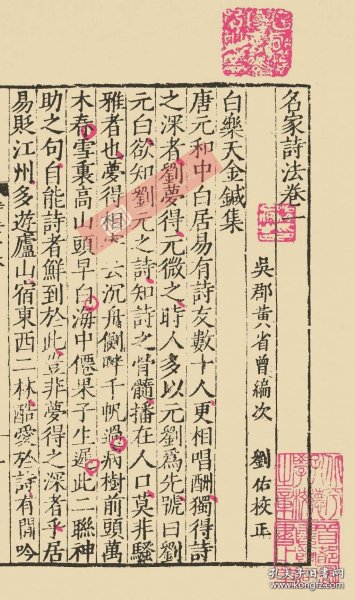 名家詩法卷一
吳郡黃省曾編次 劉佑校正
白樂天金鍼集
唐元和中白居易有詩友數十人更相唱酬獨得詩
之深者劉夢得元微之時人多以元劉爲先號曰劉
元白欲知劉元之詩知詩之骨髓播在人口莫非騷
雅者也夢得相云沉舟側畔千帆過病樹前頭萬
木春雪裏高山頭早白海中僊果子生遲此二聯神
助之句自能詩者鮮到於此豈非夢得之深者乎居
易貶江州多遊廬山宿東西二林酷愛於詩有閒吟